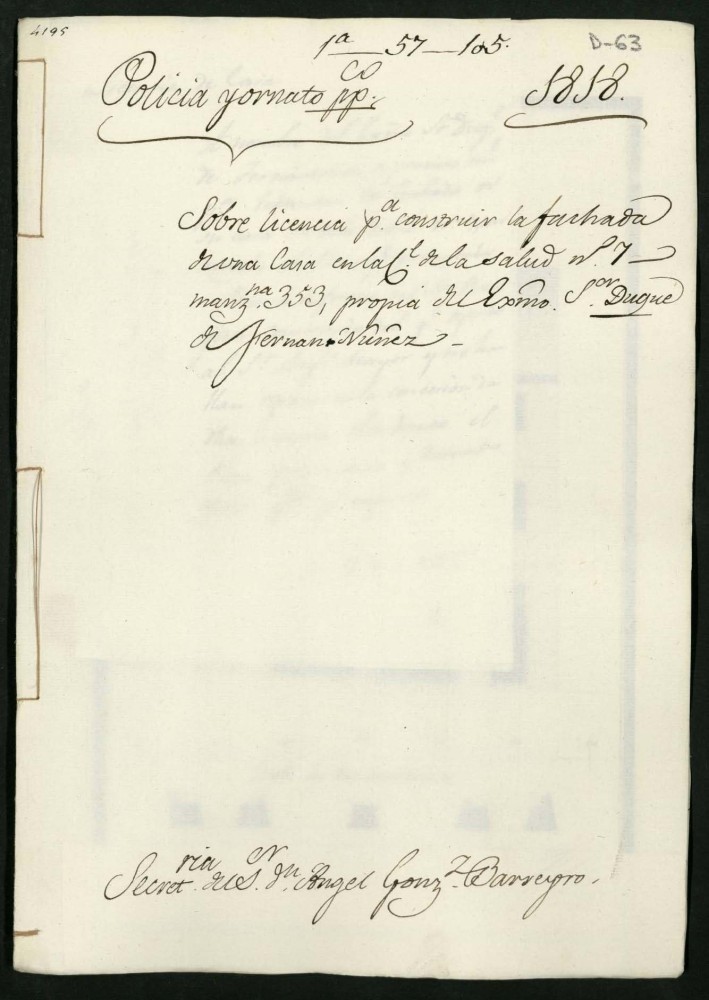 4195
1ª 57-105.
D-63
Policia y ornato pp.co
1818.
Sobre licencia p.a construir la fachada
de una Casa en la C.l de la Salud n.º 7
manz.na 353, propia del Exmo. S.or Duque
de Fernan-Nuñez
Secret.ria del S.r Dn. Angel Gonz.z Barreyro.